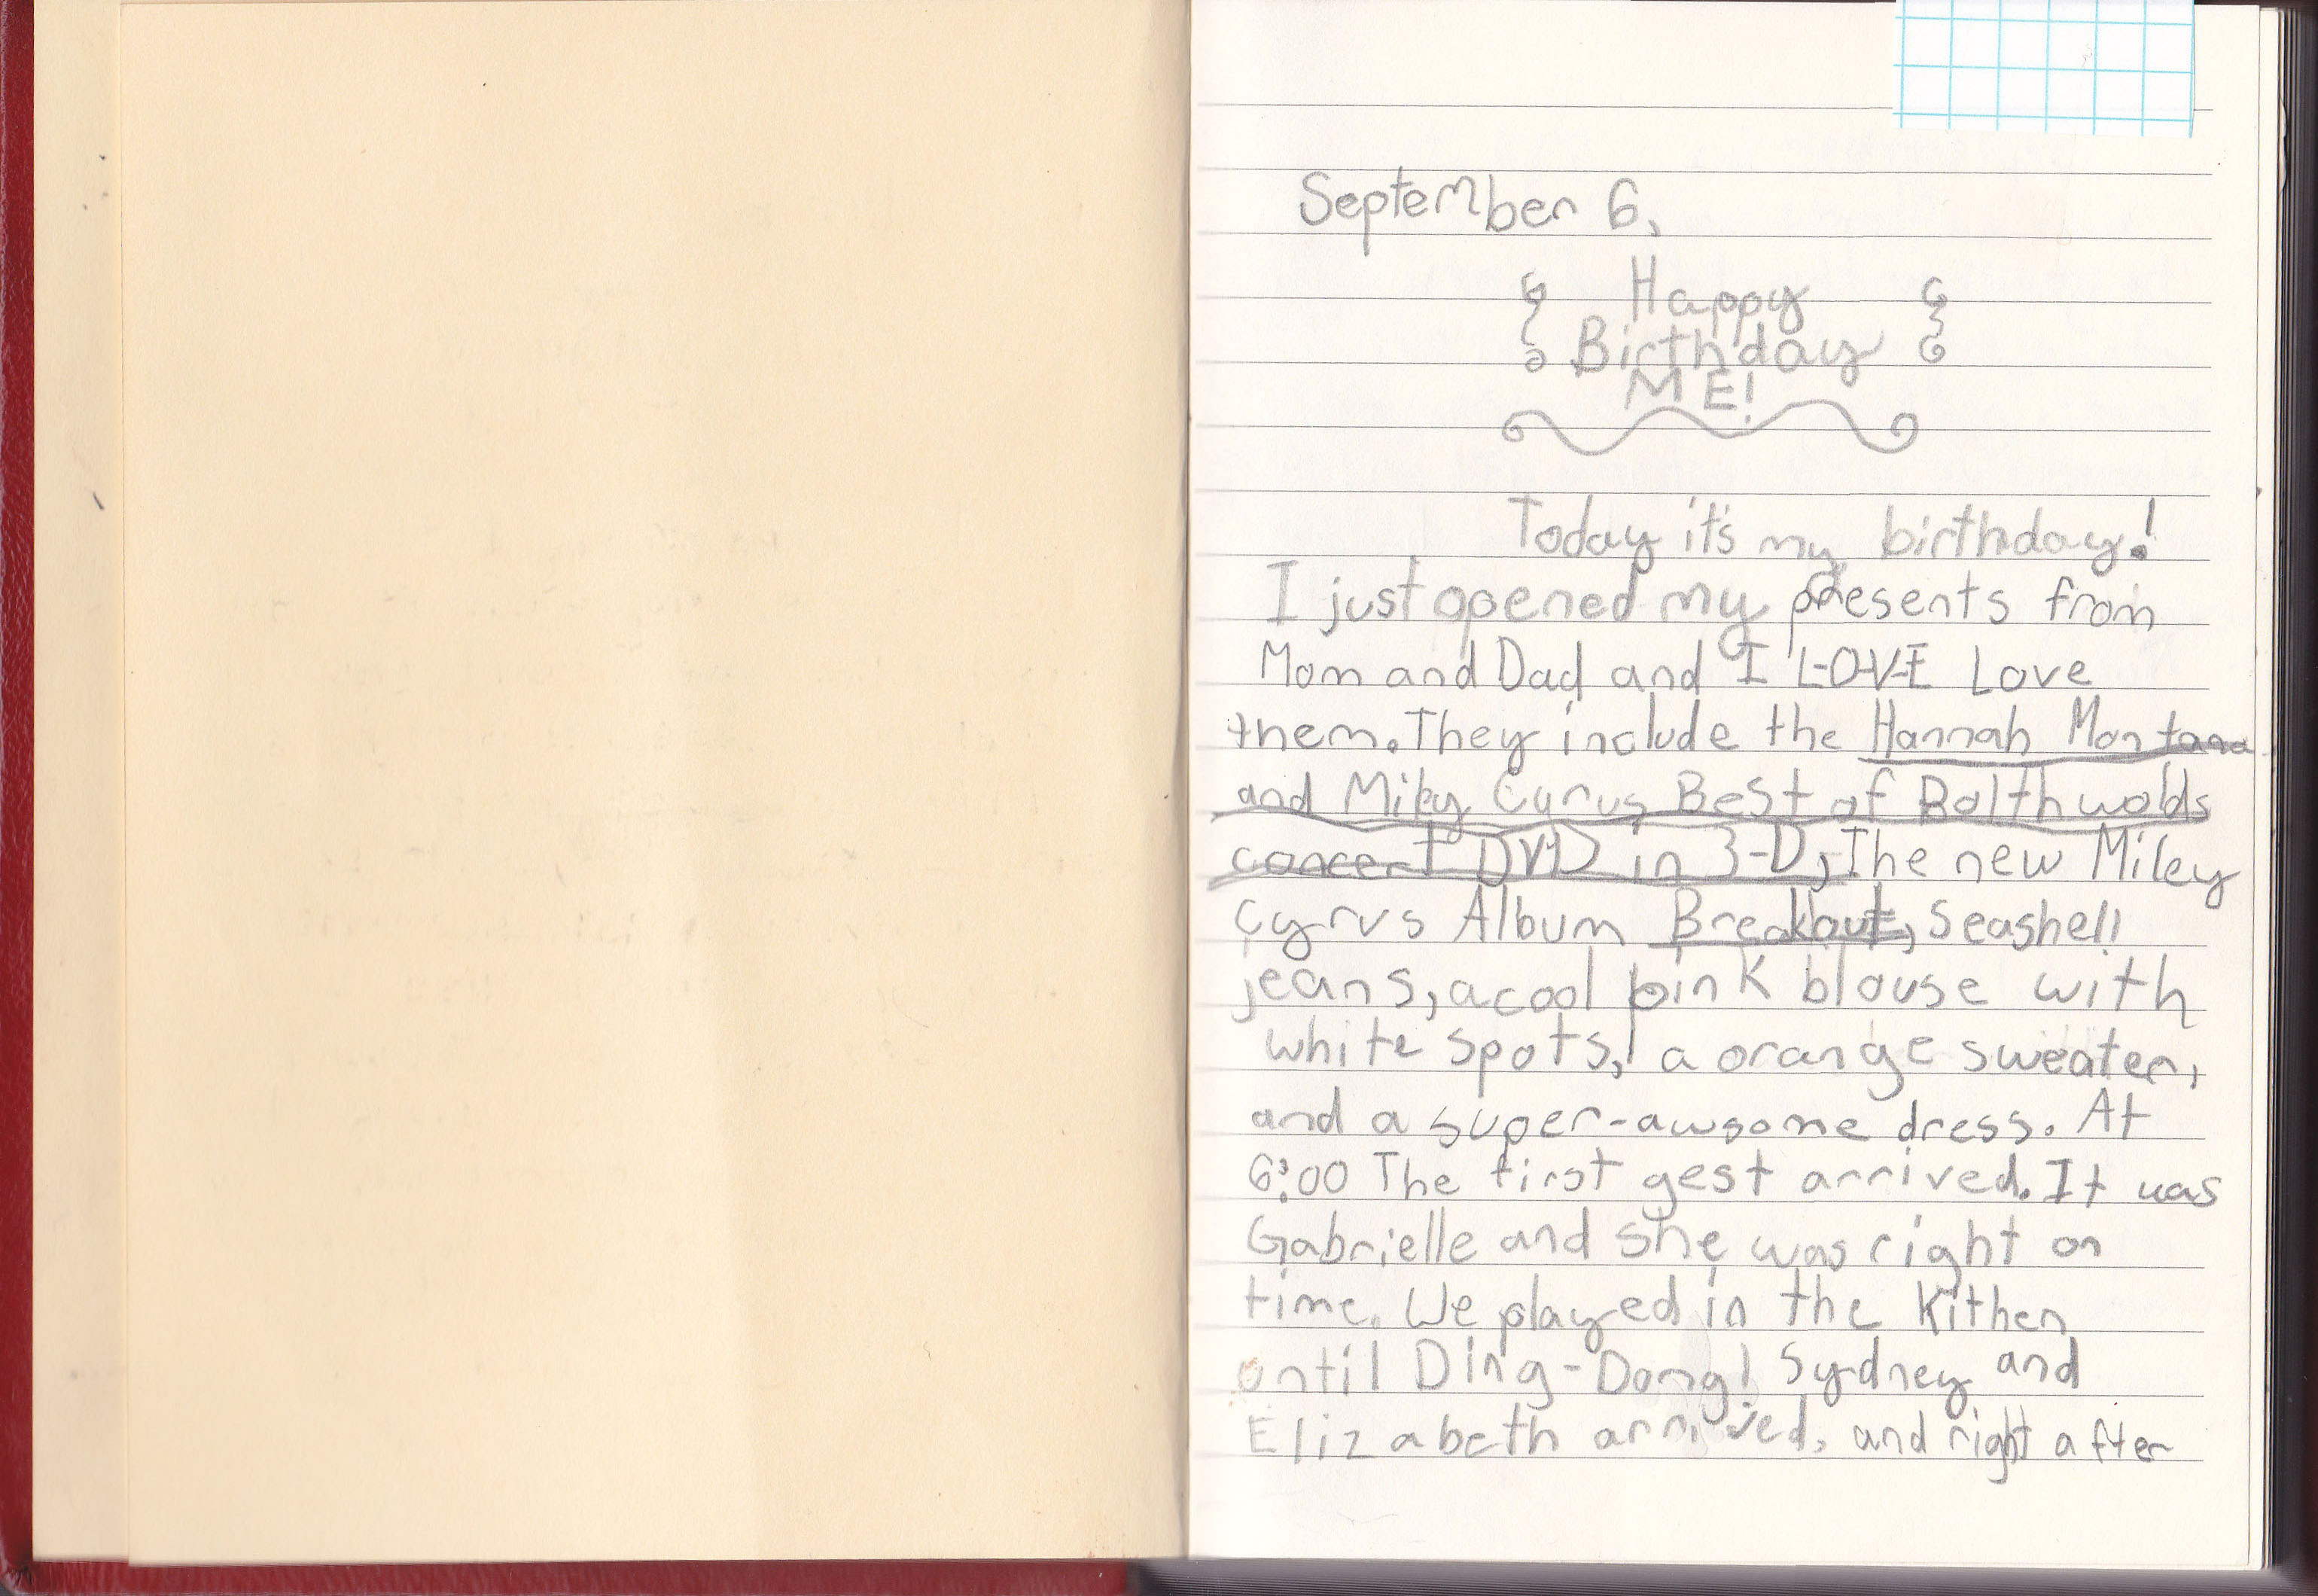 September 6,
Happy
Birthday
ME!
Today it's my birthday!
I just opened my presents from
Mom and Dad and I L-O-V-E Love
them. They include the Hannah Montana
and Miley Cyrus Best of Bolth wolds
concert DVD in 3-D, The new Miley
Cyrus Album Breakout, Seashell
jeans, a cool pink blouse with
white spots, a orange sweater,
and a super-awsome dress. At
6:00 The first gest arrived. It was
Gabrielle and she was right on
time. We played in the Kithen
until Ding-Dong! Sydney and
Elizabeth arrived, and right after